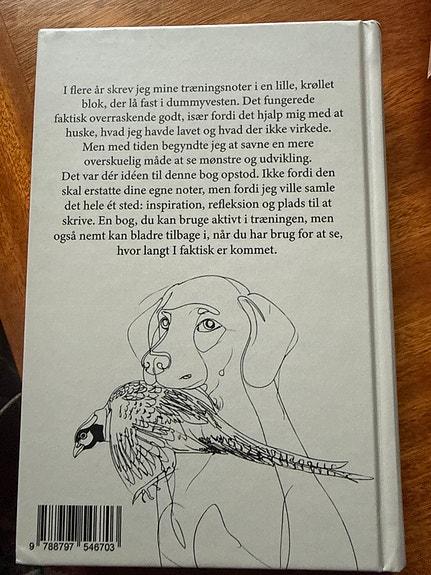 I flere år skrev jeg mine træningsnoter i en lille, krøllet
blok, der lå fast i dummyvesten. Det fungerede
faktisk overraskende godt, især fordi det hjalp mig med at
huske, hvad jeg havde lavet og hvad der ikke virkede.
Men med tiden begyndte jeg at savne en mere
overskuelig måde at se mønstre og udvikling.
Det var dér idéen til denne bog opstod. Ikke fordi den
skal erstatte dine egne noter, men fordi jeg ville samle
det hele ét sted: inspiration, refleksion og plads til at
skrive. En bog, du kan bruge aktivt i træningen, men
også nemt kan bladre tilbage i, når du har brug for at se,
hvor langt I faktisk er kommet.
9 788797 546703